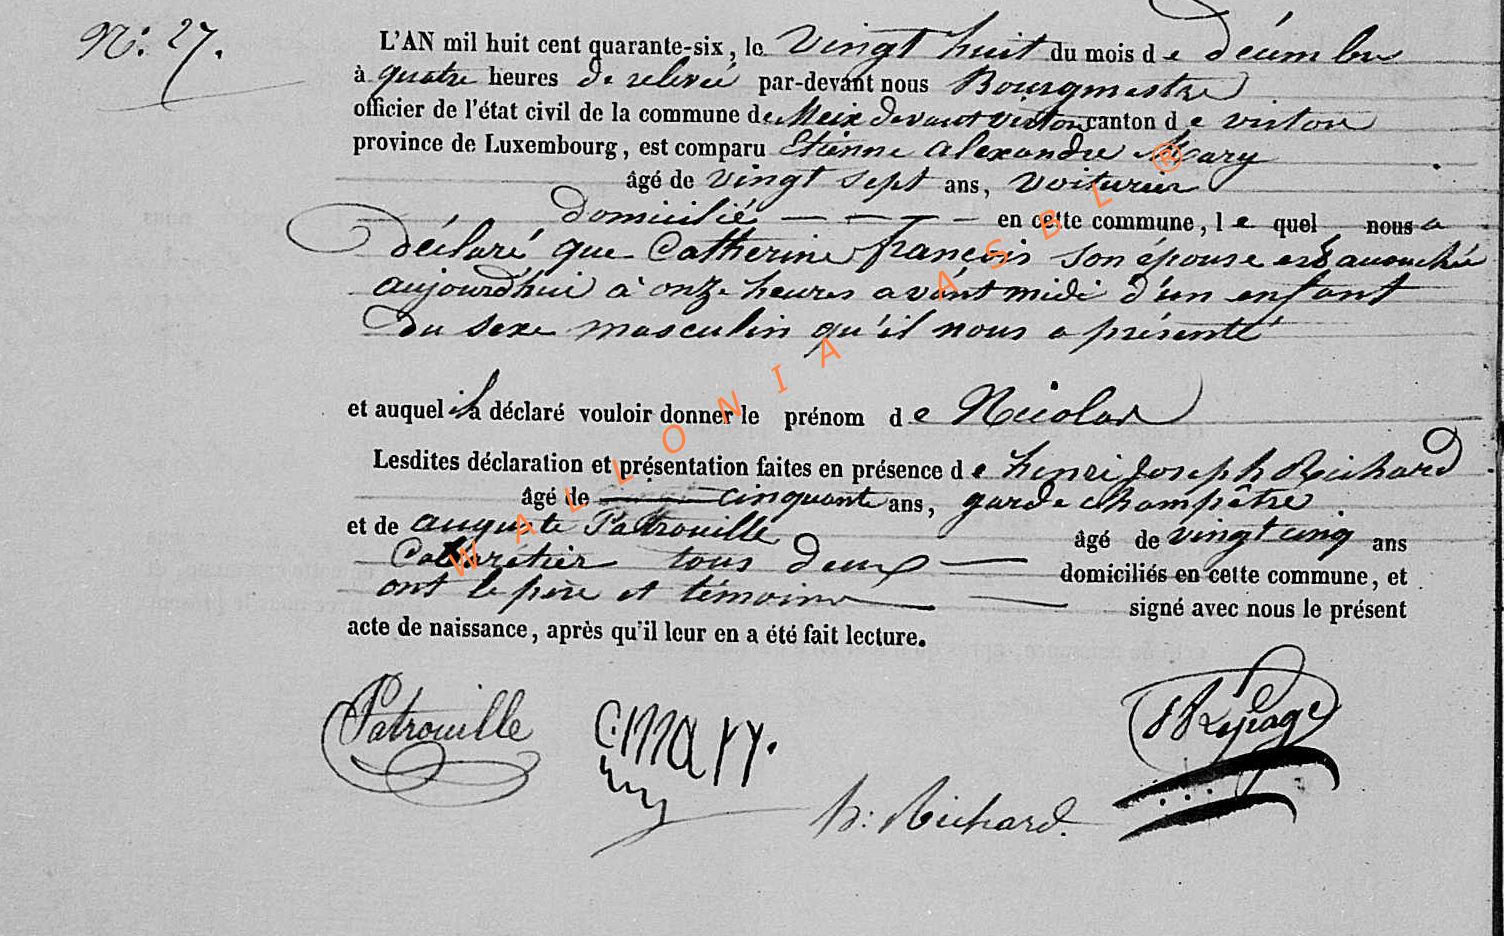 N.° 27.
L'AN mil huit cent quarante-six, le vingt huit du mois de décembre
à quatre heures de relevée par-devant nous Bourgmestre
officier de l'état civil de la commune de Meix devant virton canton de virton
province de Luxembourg, est comparu Etienne alexandre Mary
âgé de vingt sept ans, voiturier
domicilié — — — — en cette commune, le quel nous a
déclaré que Catherine françois son épouse est accouchée
aujourd'hui à onze heures avant midi d'un enfant
du sexe masculin qu'il nous a présenté
et auquel il a déclaré vouloir donner le prénom de Nicolas
Lesdites déclaration et présentation faites en présence de henri Joseph Richard
âgé de cinquante ans, garde champêtre
et de auguste Patrouille âgé de vingt cinq ans
Cabaretier tous deux — domiciliés en cette commune, et
ont le père et témoins — — signé avec nous le présent
acte de naissance, après qu'il leur en a été fait lecture.
Patrouille
mary.
Lepage
h: Richard.
WALLONIA ASBL ®